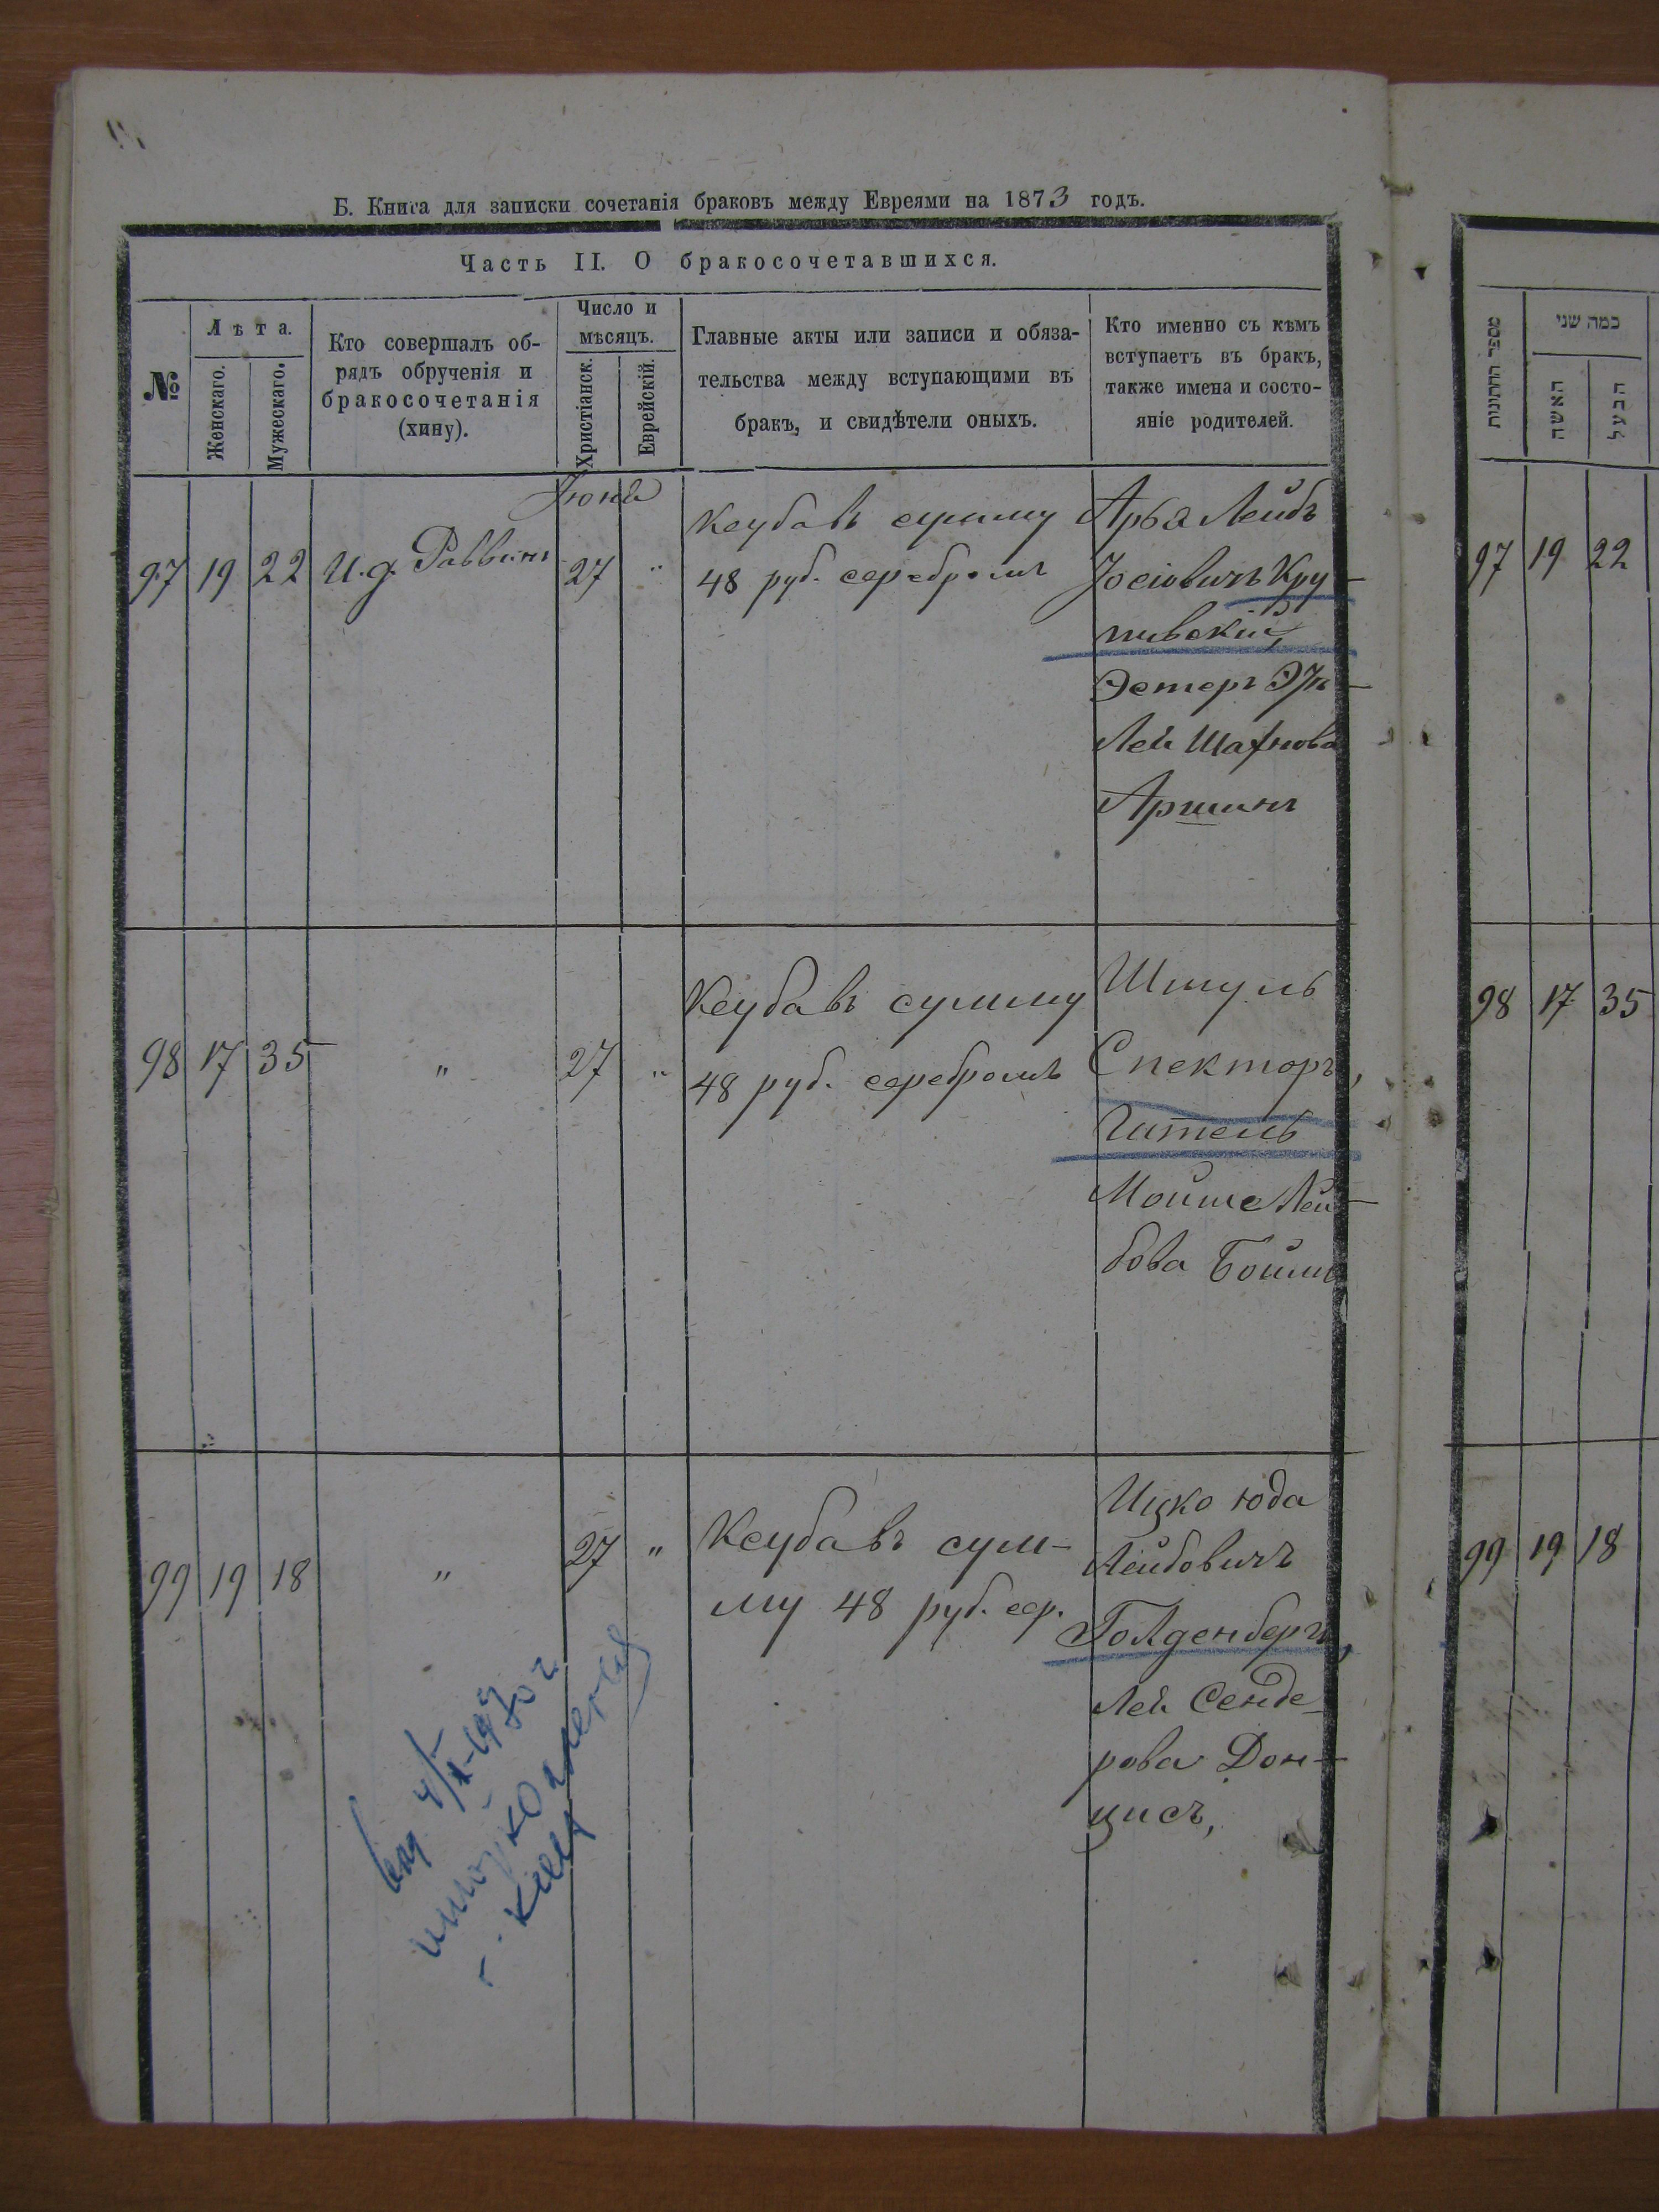 Б. Книга для записки сочетанія браковъ между Евреями на 1873 годъ.
Часть II. О бракосочетавшихся.
№
Лѣта.
Женскаго.
Мужескаго.
Кто совершалъ об-
рядъ обрученія и
бракосочетанія
(хину).
Число и
мѣсяцъ.
Христіанск.
Еврейскій.
Главные акты или записи и обяза-
тельства между вступающими въ
бракъ, и свидѣтели оныхъ.
Кто именно съ кѣмъ
вступаетъ въ бракъ,
также имена и состо-
яніе родителей.
מספר החתונות
כמה שני
האשה
הבעל
Іюня
97 19 22 И.д. Раввинъ 27 "
Ксуба въ сумму
48 руб. серебромъ
Арья Лейбъ
Іосіовичъ Кру-
пивскій,
Эстеръ
Лея Шахнова
Аршинъ
97 19 22
98 17 35 " 27 "
Ксуба въ сумму
48 руб. серебромъ
Шмуль
Спекторъ,
Гитель
Мойше Лей-
бова Бойм
98 17 35
99 19 18 " 27 "
Ксуба въ сум-
му 48 руб. сер.
Ицко Юда
Лейбовичъ
Голденбергъ,
Лея Сенде-
рова Дон-
цисъ,
99 19 18
г. Киев